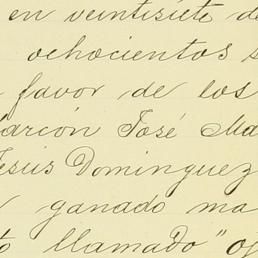 en veintisiete de
ochocientos s
favor de los
larcón José Ma
Jesús Dominguez
ganado ma
llamado "oj